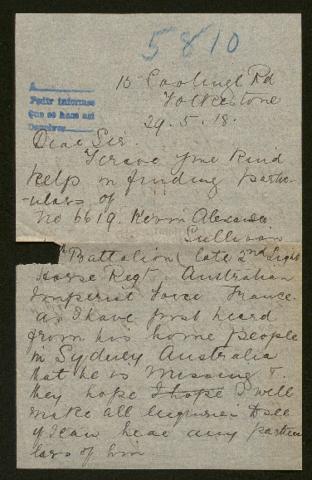 5810
15 Coolinge Rd
Folkestone
29.5.18.
Dear Sir.
I crave your kind
help in finding partic-
ulars of
No 6619. Kevin Alexander
Sullivan
th Battalion (late 2nd Light
Horse Regt. Australian
Imperial Force France.
As I have just heard
from his home people
in Sydney Australia
that he is missing &
they hope I hope I will
make all inquiries to see
if I can hear any particu
lars of him